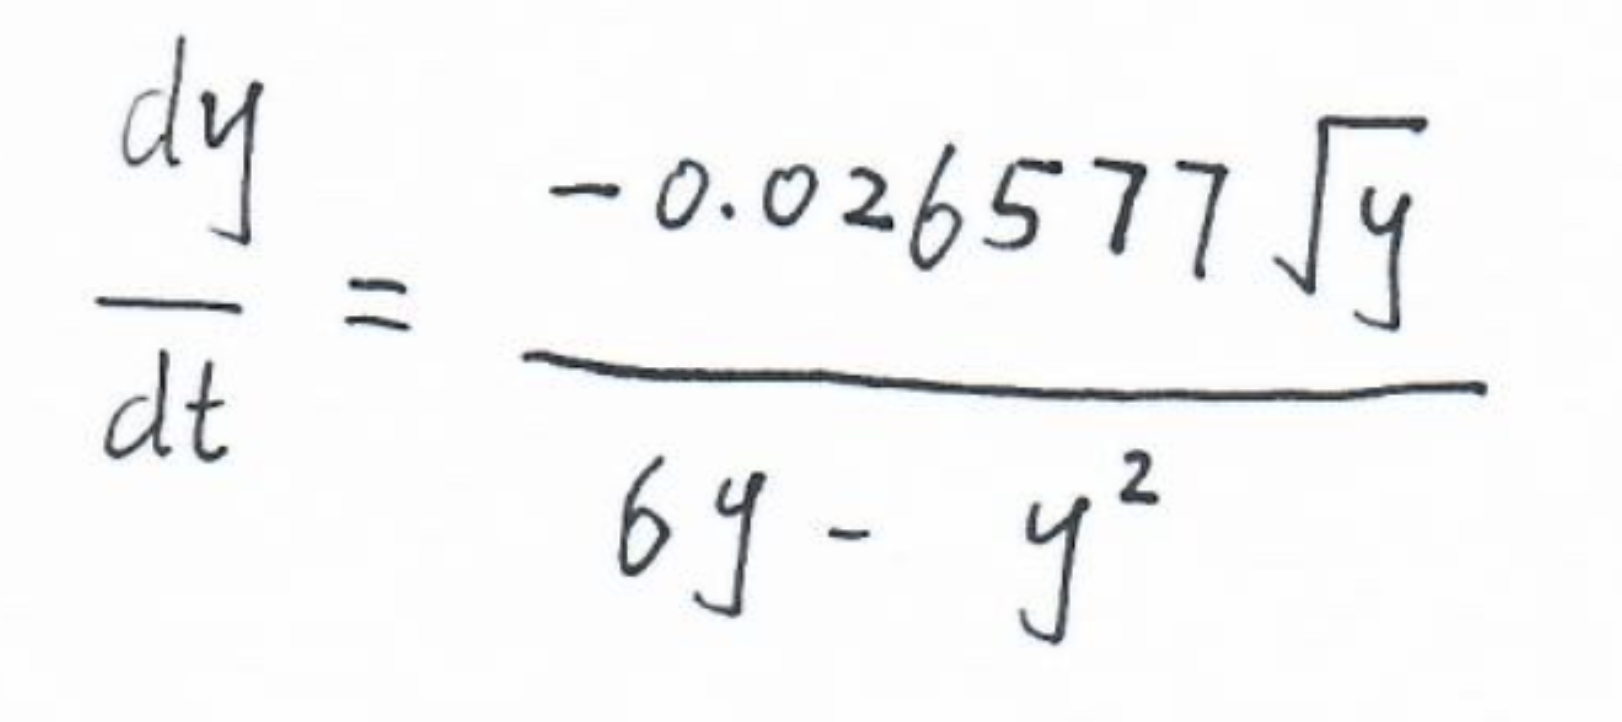 dy/dt = -0.026577√y / 6y - y²